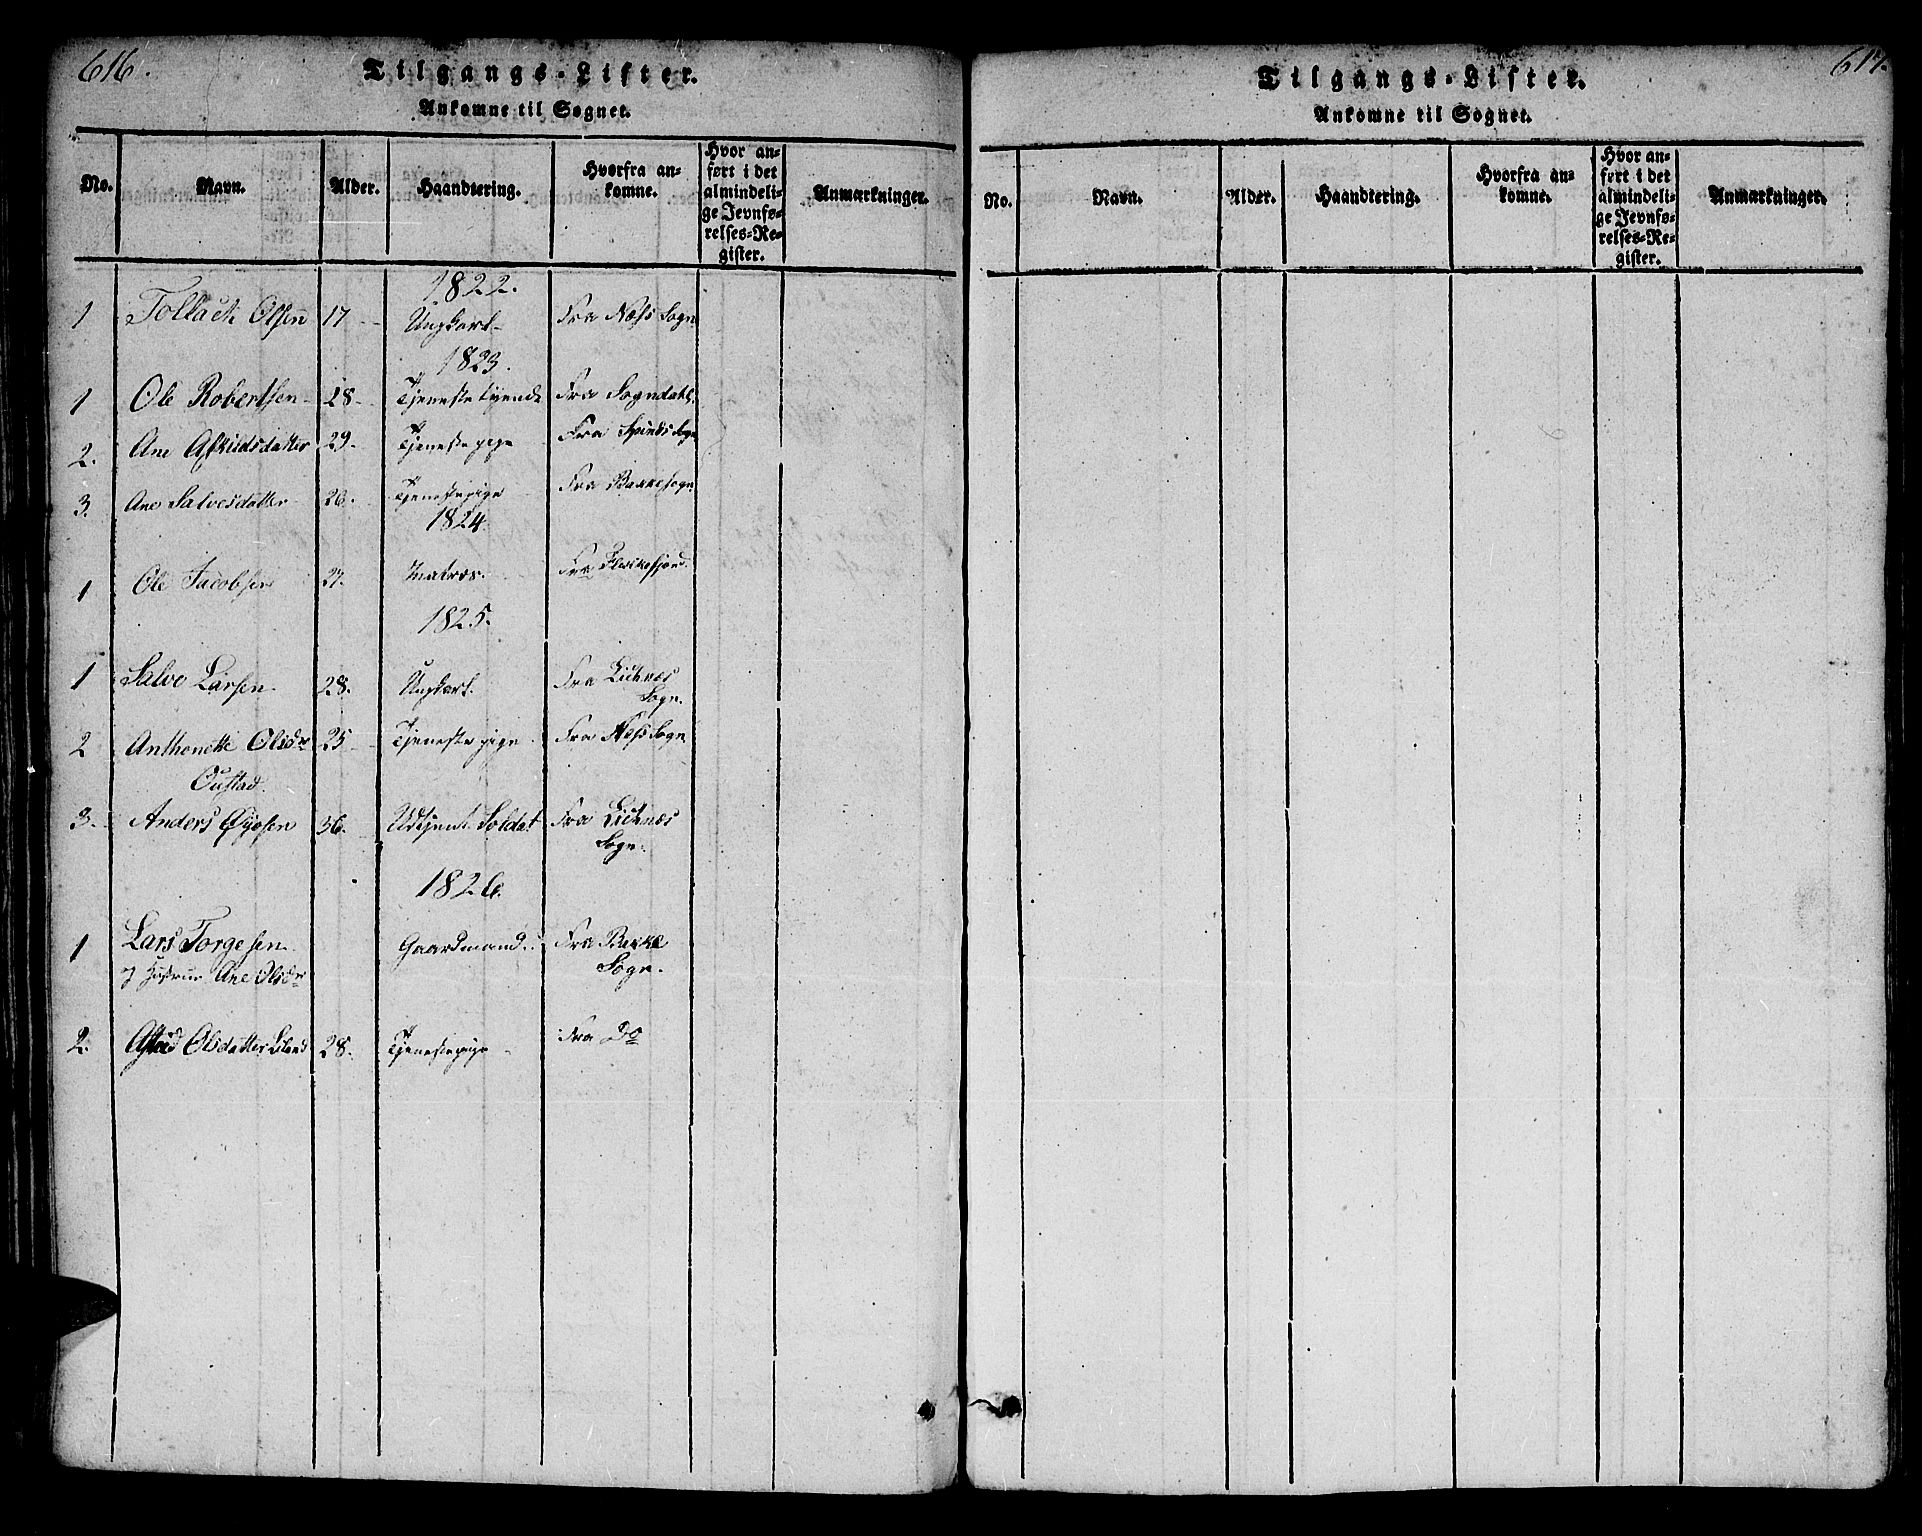 616.
Tilgangs-Lister.
Ankomne til Sognet.
No. Navn. Alder. Haandtering. Hvorfra ankomne. Hvor anført i det almindelige Jevnførelses-Register. Anmærkninger.
1822.
1 Tollach Olsen 17 Ungkarl Fra Næss Sogn
1823.
1 Ole Robertsen 28 Tjenestetyende Fra Sogndahl
2. Ane Asbiudsdatter 29. Tjenestepige Fra Spinds Sogn
3. Ane Salvesdatter 26. Tjenestepige Fra Bakke Sogn
1824.
1 Ole Jacobsen 27. Matros. Fra Flekkefjord.
1825.
1 Salve Larsen 28. Ungkarl. Fra Liknæs
Sogn.
2 Anthonette Olsdr 25 Tjenestepige Fra Næss Sogn
Oustad.
3. Anders Øyesen 36. Udtjent Soldat Fra Liknæs
Sogn.
1826.
1 Lars Torgesen Gaardmand. Fra Bakke
og Hustrue Ane Olsdr Sogn.
2. Astrid Olsdatter Liland 28. Tjenestepige Fra Do
617.
Tilgangs-Lister.
Ankomne til Sognet.
No. Navn. Alder. Haandtering. Hvorfra ankomne. Hvor anført i det almindelige Jevnførelses-Register. Anmærkninger.